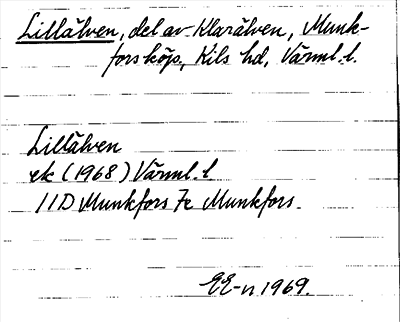 Lillälven, del av Klarälven, Munk-
fors köp., Kils hd, Värml. l.
Lillälven
ek (1968) Värml. l
11D Munkfors 7c Munkfors.
EE-n 1969.